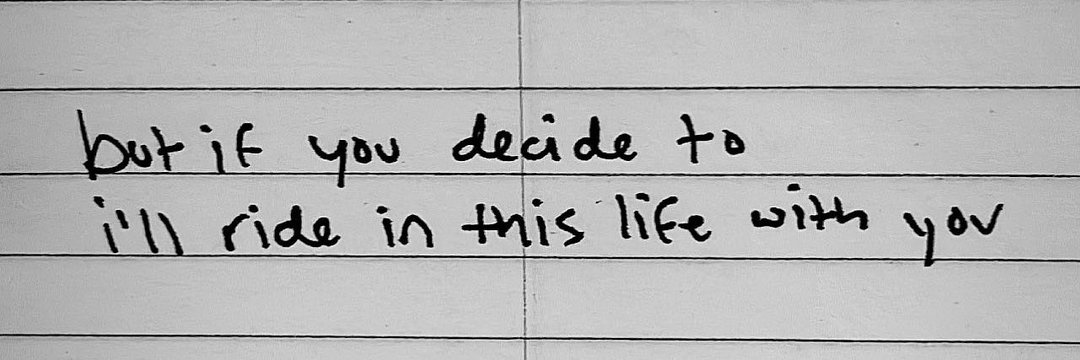 but if you decide to
i'll ride in this life with you